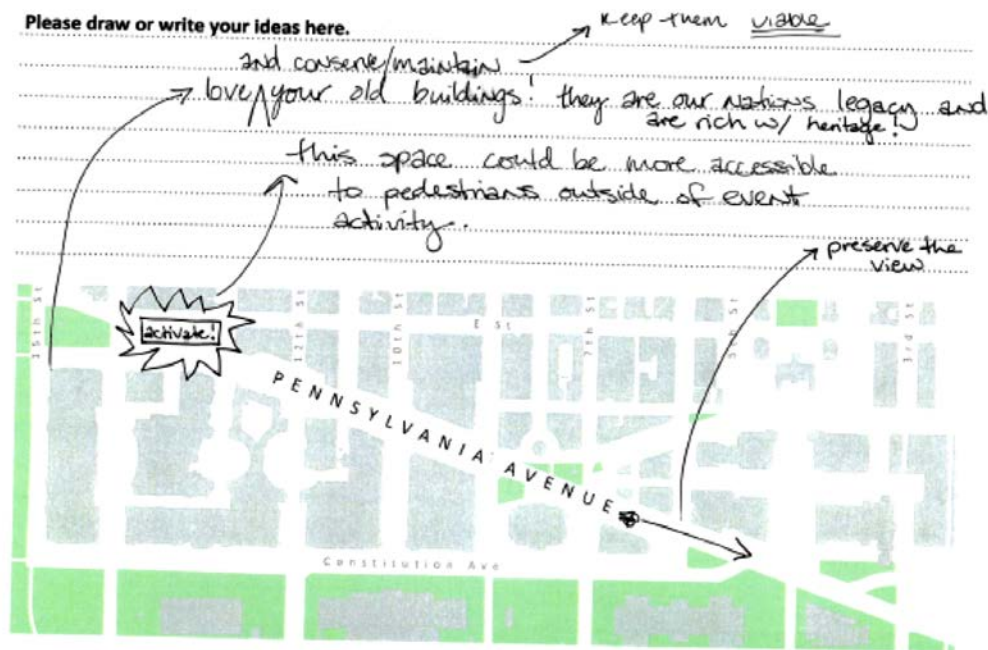 Please draw or write your ideas here.
keep them viable
and conserve/maintain
love your old buildings! they are our nations legacy and
are rich w/ heritage!
this space could be more accessible
to pedestrians outside of event
activity.
preserve the
view
activate!
15th St
12th St
10th St
E St
7th St
5th St
3rd St
PENNSYLVANIA AVENUE
Constitution Ave